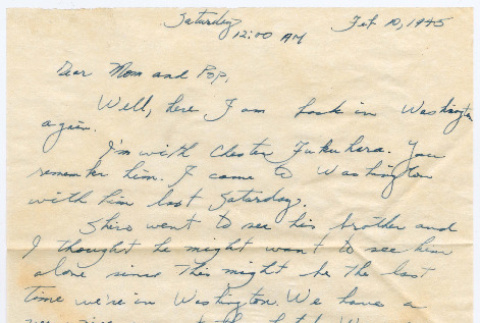 Saturday Feb 10, 1945
12:00 AM
Dear Mom and Pop,
Well, here I am back in Washington
again.
I'm with Chester Fukuhara. You
remember him. I came to Washington
with him last Saturday.
Shiro went to see his brother and
I thought he might want to see him
alone since this might be the last
time we're in Washington. We have a